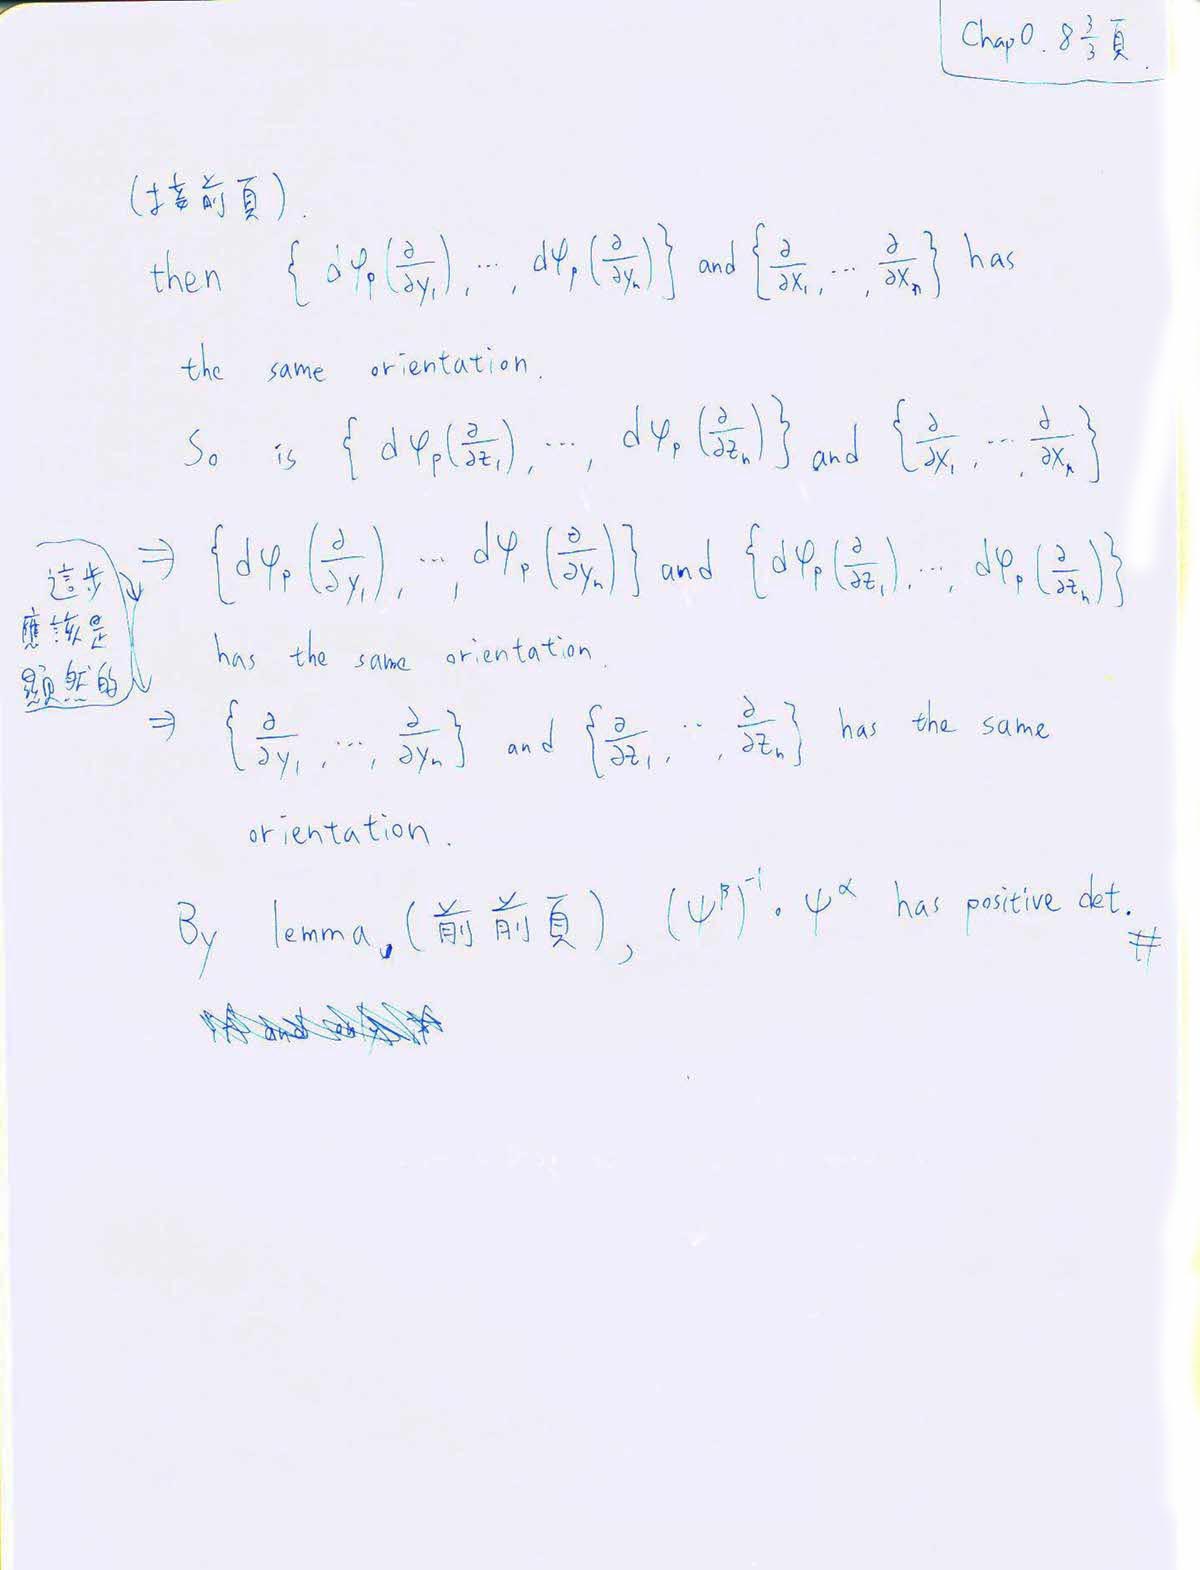 Chap0. 8 3/3 頁.
(接前頁).
then { dφ_p(∂/∂y_1), ..., dφ_p(∂/∂y_n) } and { ∂/∂x_1, ..., ∂/∂x_n } has
the same orientation.
So is { dφ_p(∂/∂z_1), ..., dφ_p(∂/∂z_n) } and { ∂/∂x_1, ..., ∂/∂x_n }
⇒ { dφ_p(∂/∂y_1), ..., dφ_p(∂/∂y_n) } and { dφ_p(∂/∂z_1), ..., dφ_p(∂/∂z_n) }
這步
應該是
顯然的
has the same orientation.
⇒ { ∂/∂y_1, ..., ∂/∂y_n } and { ∂/∂z_1, ..., ∂/∂z_n } has the same
orientation.
By lemma, (前前頁), (ψ^β)^{-1} ∘ ψ^α has positive det. #